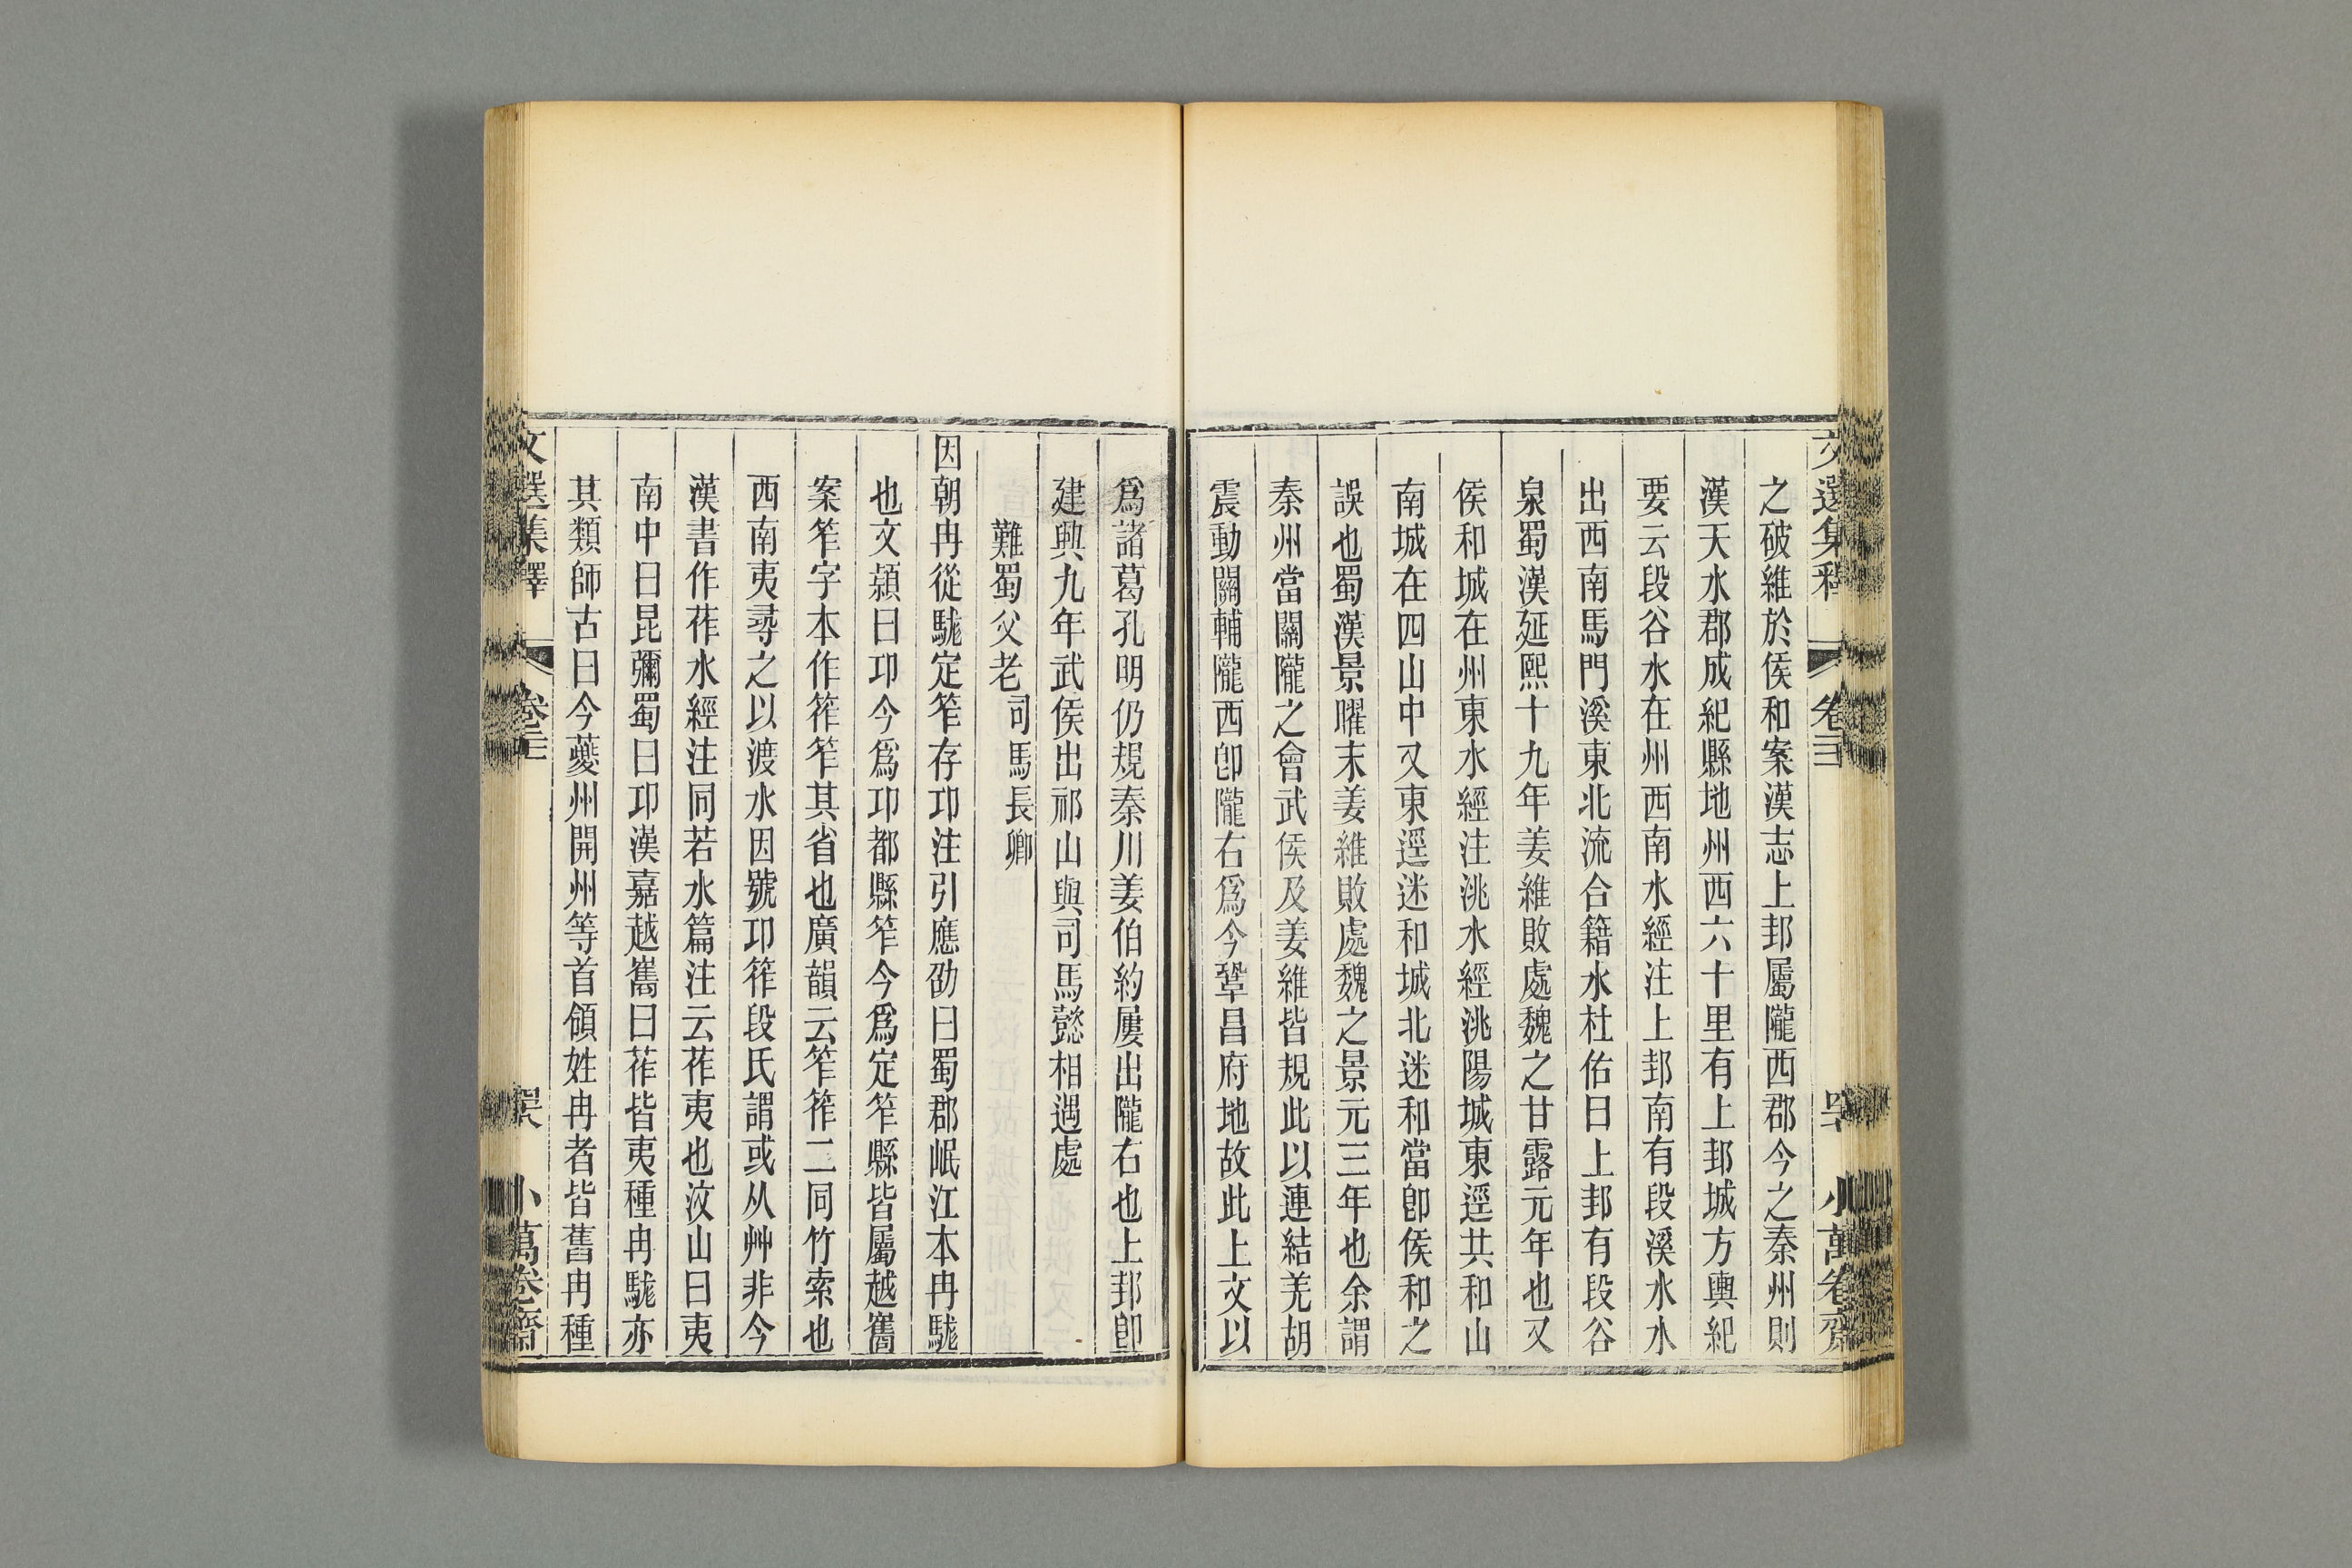 之破維於侯和案漢志上邽屬隴西郡今之秦州則
漢天水郡成紀縣地州西六十里有上邽城方輿紀
要云段谷水在州西南水經注上邽南有段溪水水
出西南馬門溪東北流合籍水杜佑曰上邽有段谷
泉蜀漢延熙十九年姜維敗處魏之甘露元年也又
侯和城在州東水經注洮水經洮陽城東逕共和山
南城在四山中又東逕迷和城北迷和當卽侯和之
誤也蜀漢景曜末姜維敗處魏之景元三年也余謂
秦州當關隴之會武侯及姜維皆規此以連結羌胡
震動關輔隴西卽隴右爲今鞏昌府地故此上文以
爲諸葛孔明仍規秦川姜伯約屢出隴右也上邽卽
建興九年武侯出祁山與司馬懿相遇處
難蜀父老 司馬長卿
因朝冉從駹定筰存邛注引應劭曰蜀郡岷江本冉駹
也文潁曰邛今爲邛都縣筰今爲定筰縣皆屬越巂
案筰字本作筰笮其省也廣韻云笮筰二同竹索也
西南夷尋之以渡水因號邛筰段氏謂或从艸非今
漢書作莋水經注同若水篇注云莋夷也汶山曰夷
南中曰昆彌蜀曰邛漢嘉越巂曰莋皆夷種冉駹亦
其類師古曰今夔州開州等首領姓冉者皆舊冉種
文選集釋 卷二十三 小萬卷齋